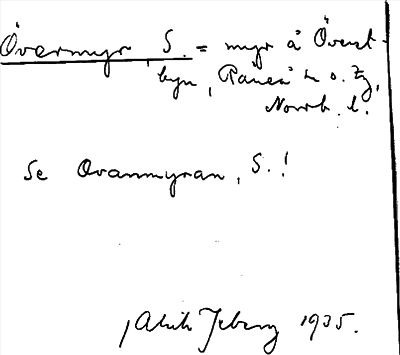 Övermyr, S. = myr å Överst-
byn, Råneå sn o. tg,
Norrb. l.
Se Ovanmyran, S.!
1935.